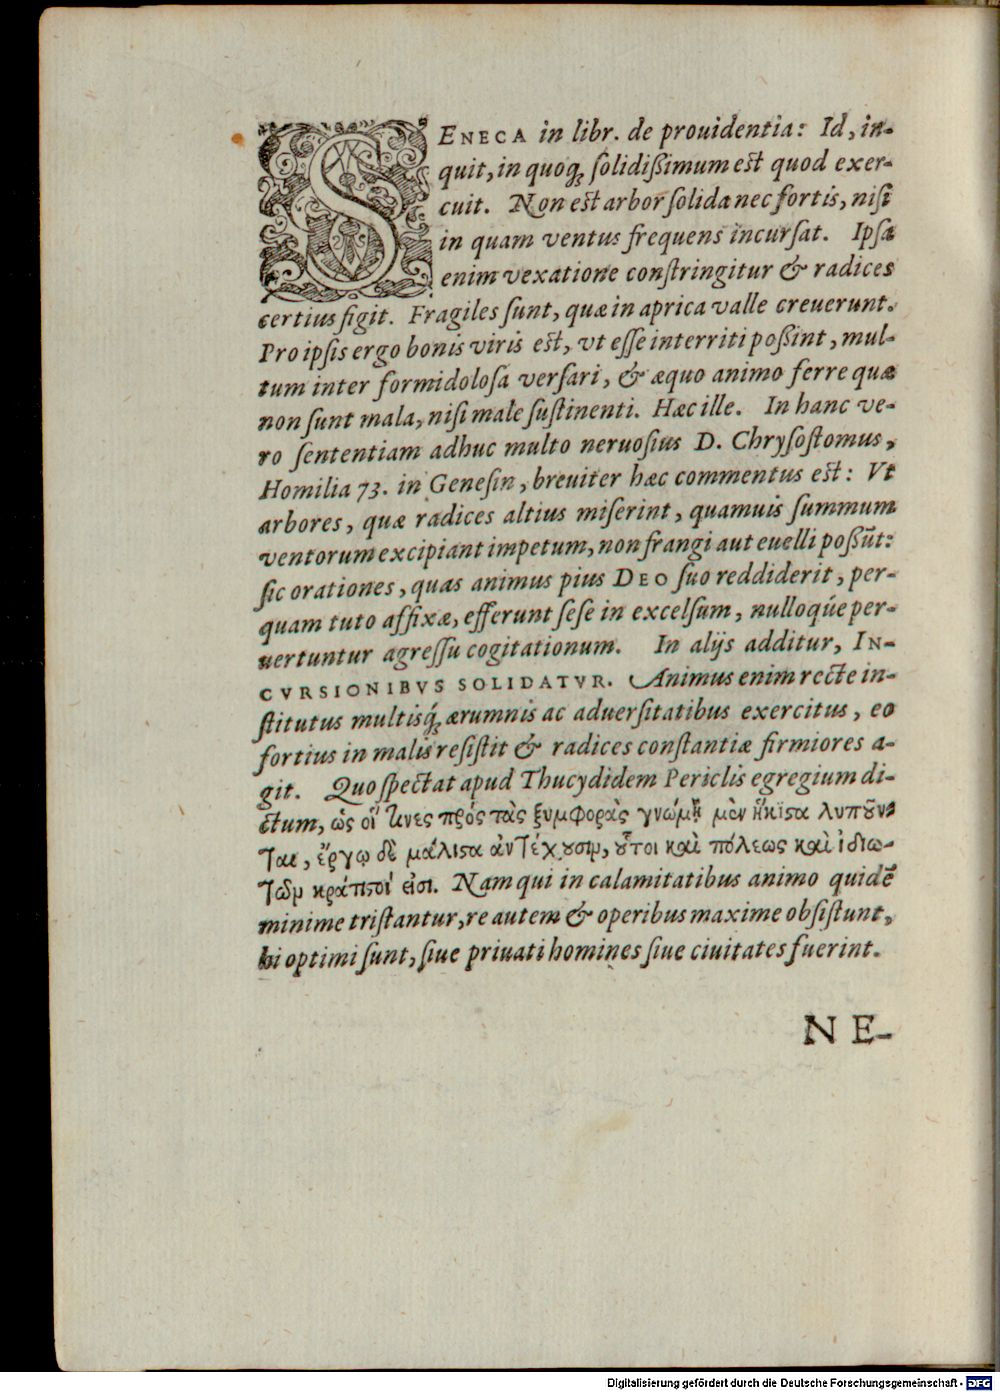 SENECA in libr. de prouidentia: Id, in-
quit, in quoq́; solidißimum est quod exer-
cuit. Non est arbor solida nec fortis, nisi
in quam ventus frequens incursat. Ipsa
enim vexatione constringitur & radices
certius figit. Fragiles sunt, quæ in aprica valle creuerunt.
Pro ipsis ergo bonis viris est, vt esse interriti poßint, mul-
tum inter formidolosa versari, & æquo animo ferre quæ
non sunt mala, nisi male sustinenti. Hæc ille. In hanc ve-
ro sententiam adhuc multo neruosius D. Chrysostomus,
Homilia 73. in Genesin, breuiter hæc commentus est: Vt
arbores, quæ radices altius miserint, quamuis summum
ventorum excipiant impetum, non frangi aut euelli poßũt:
sic orationes, quas animus pius DEO suo reddiderit, per-
quam tuto affixæ, efferunt sese in excelsum, nulloqúe per-
uertuntur agressu cogitationum. In alijs additur, IN-
CVRSIONIBVS SOLIDATVR. Animus enim recte in-
stitutus multisq́; ærumnis ac aduersitatibus exercitus, eo
fortius in malis resistit & radices constantiæ firmiores a-
git. Quo spectat apud Thucydidem Periclis egregium di-
ctum, ὡς οἵ τινες πρὸς τὰς ξυμφορὰς γνώμῃ μὲν ἥκιστα λυποῦν-
ται, ἔργῳ δὲ μάλιστα ἀντέχουσιν, οὗτοι καὶ πόλεως καὶ ἰδιω-
τῶν κράτιστοί εἰσι. Nam qui in calamitatibus animo quidẽ
minime tristantur, re autem & operibus maxime obsistunt,
hi optimi sunt, siue priuati homines siue ciuitates fuerint.
NE-
Digitalisierung gefördert durch die Deutsche Forschungsgemeinschaft - DFG